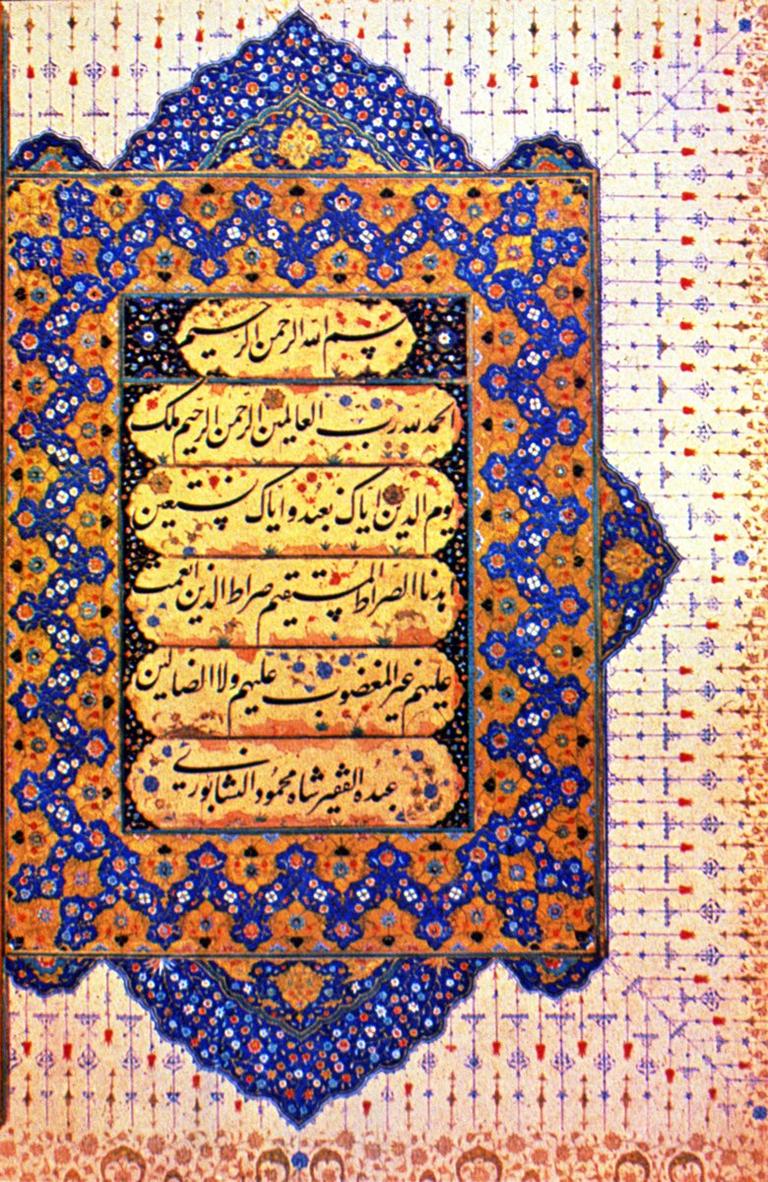 بسم الله الرحمن الرحيم
الحمد لله رب العالمين الرحمن الرحيم ملك
يوم الدين اياك نعبد و اياك نستعين
هدنا الصراط المستقيم صراط الذين انعمت
عليهم غير المغضوب عليهم ولا الضالين
عبده الفقير شاه محمود النشابوري